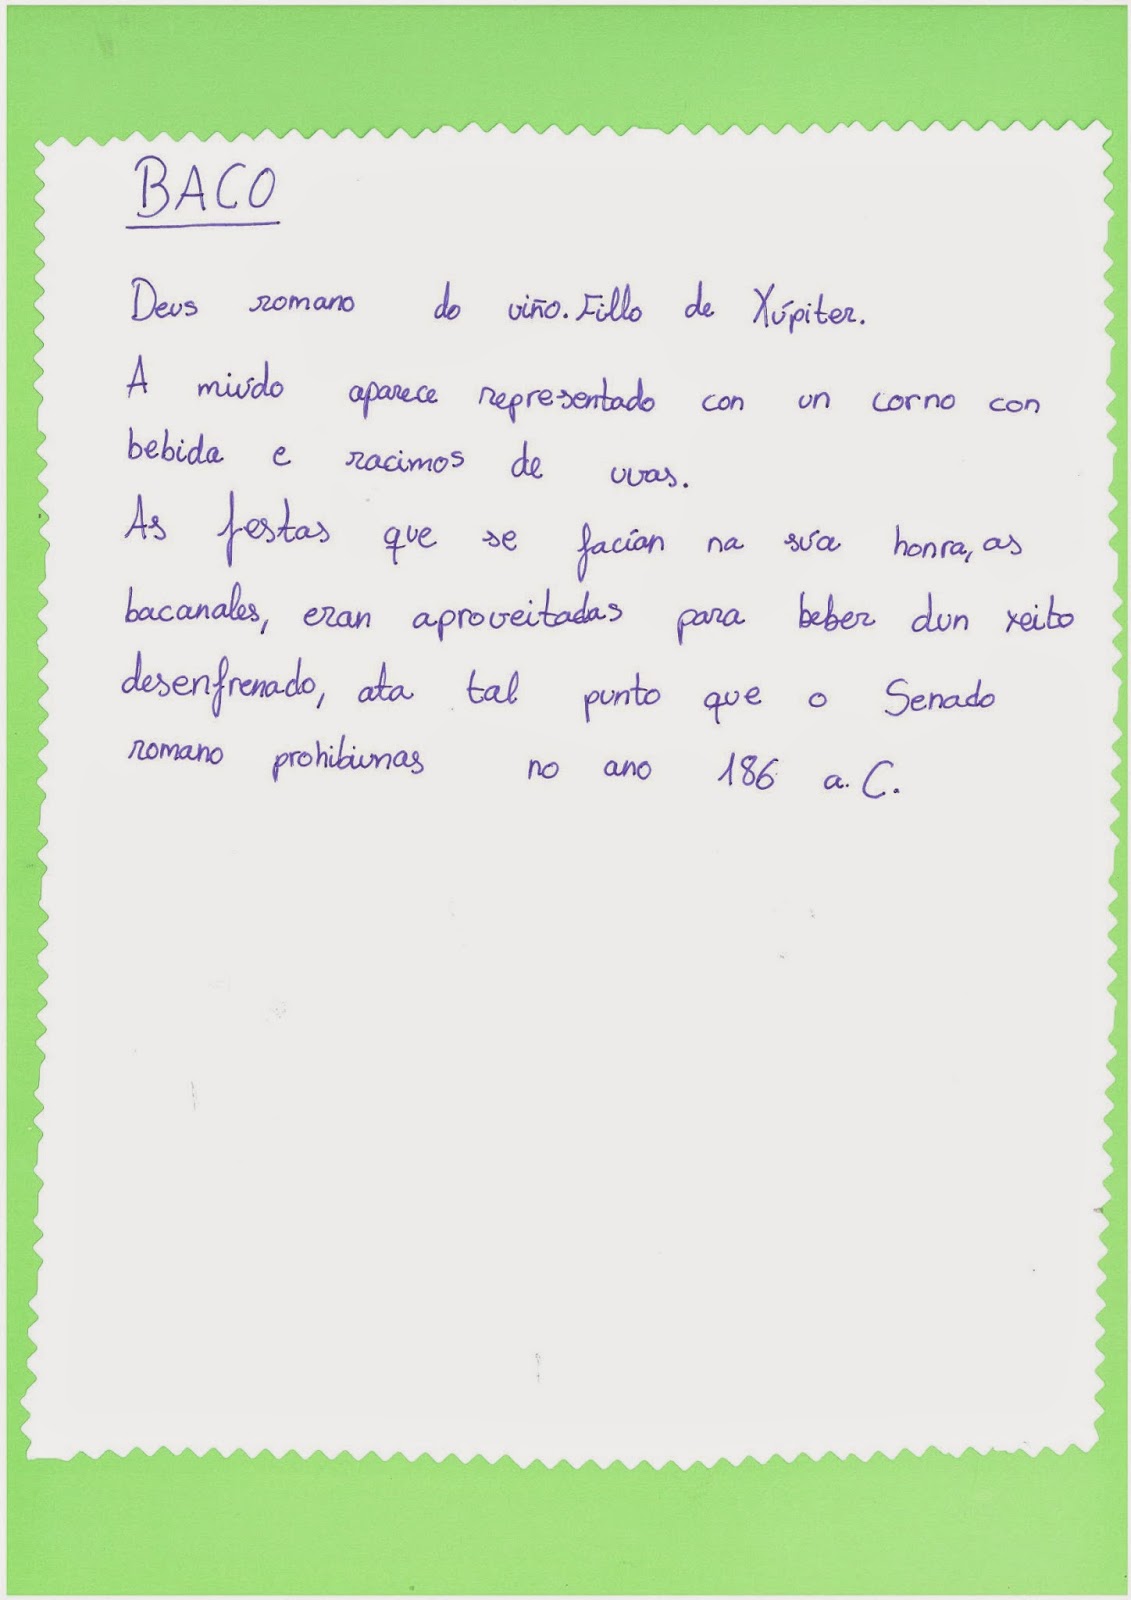 BACO
Deus romano do viño. Fillo de Xúpiter.
A miúdo aparece representado con un corno con
bebida e racimos de uvas.
As festas que se facían na súa honra, as
bacanales, eran aproveitadas para beber dun xeito
desenfrenado, ata tal punto que o Senado
romano prohibiunas no ano 186 a. C.